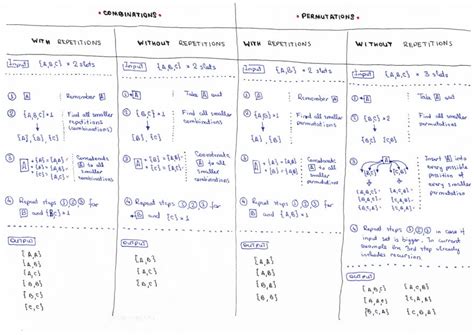 • COMBINATIONS •
• PERMUTATIONS •
WITH REPETITIONS
WITHOUT REPETITIONS
WITH REPETITIONS
WITHOUT REPETITIONS
Input {A,B,C} × 2 slots
Input {A,B,C} × 2 slots
Input {A,B} × 2 slots
Input {A,B,C} × 3 slots
① A Remember A
② {A,B,C}×1 Find all smaller
repetitions
(combinations)
{A}, {B}, {C}
③ Concatenate
A to all
smaller
combinations
④ Repeat steps ① ② ③ for
B and {C}×1
OUTPUT
{A,A}
{A,B}
{A,C}
{B,B}
{B,C}
{C,C}
① A Take A out
② {B,C}×1 Find all
smaller
combinations
{B}, {C}
③ A to all
smaller
combinations
④ Repeat steps ① ② ③ for
B and {C}×1
OUTPUT
{A,B}
{A,C}
{B,C}
① A Remember A
② {A,B}×1 Find all smaller
permutations
{A}, {B}
③ Concatenate
A to all
smaller
permutations
④ Repeat steps ① ② ③ for
B and
OUTPUT
{A,A}
{A,B}
{B,A}
{B,B}
① A Take A out
② {B,C}×2 Find all
smaller
permutations
{B,C} {C,B}
③ A Insert A into
every possible
position of
every smaller
permutation
{B,C} {C,B}
④ Repeat steps ① ② ③ in case if
input set is bigger. In current
example the 3rd step already
includes recursion.
OUTPUT
{A,B,C}
{B,A,C}
{B,C,A}
{A,C,B}
{C,A,B}
{C,B,A}